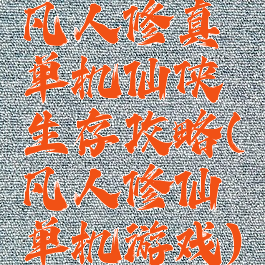 凡人修真
单机仙侠
生存攻略(
凡人修仙
单机游戏)